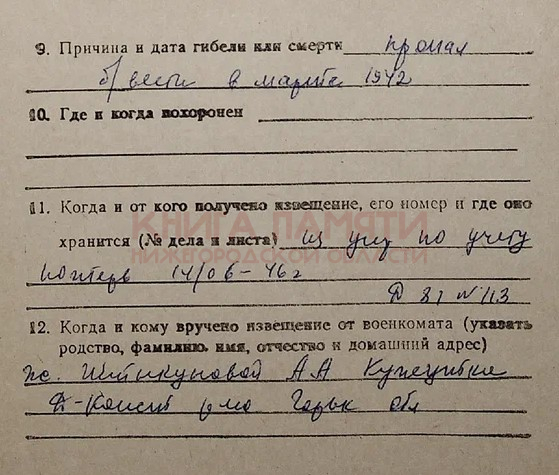 9. Причина и дата гибели или смерти пропал
б/вести в марте 1942
10. Где и когда похоронен
11. Когда и от кого получено извещение, его номер и где оно
КНИГА ПАМЯТИ
хранится (№ дела и листа) из упр по учету
НИЖЕГОРОДСКОЙ ОБЛАСТИ
потерь 14/06-46г
Д 81 № 113
12. Когда и кому вручено извещение от военкомата (указать
родство, фамилию, имя, отчество и домашний адрес)
А А
Горьк обл